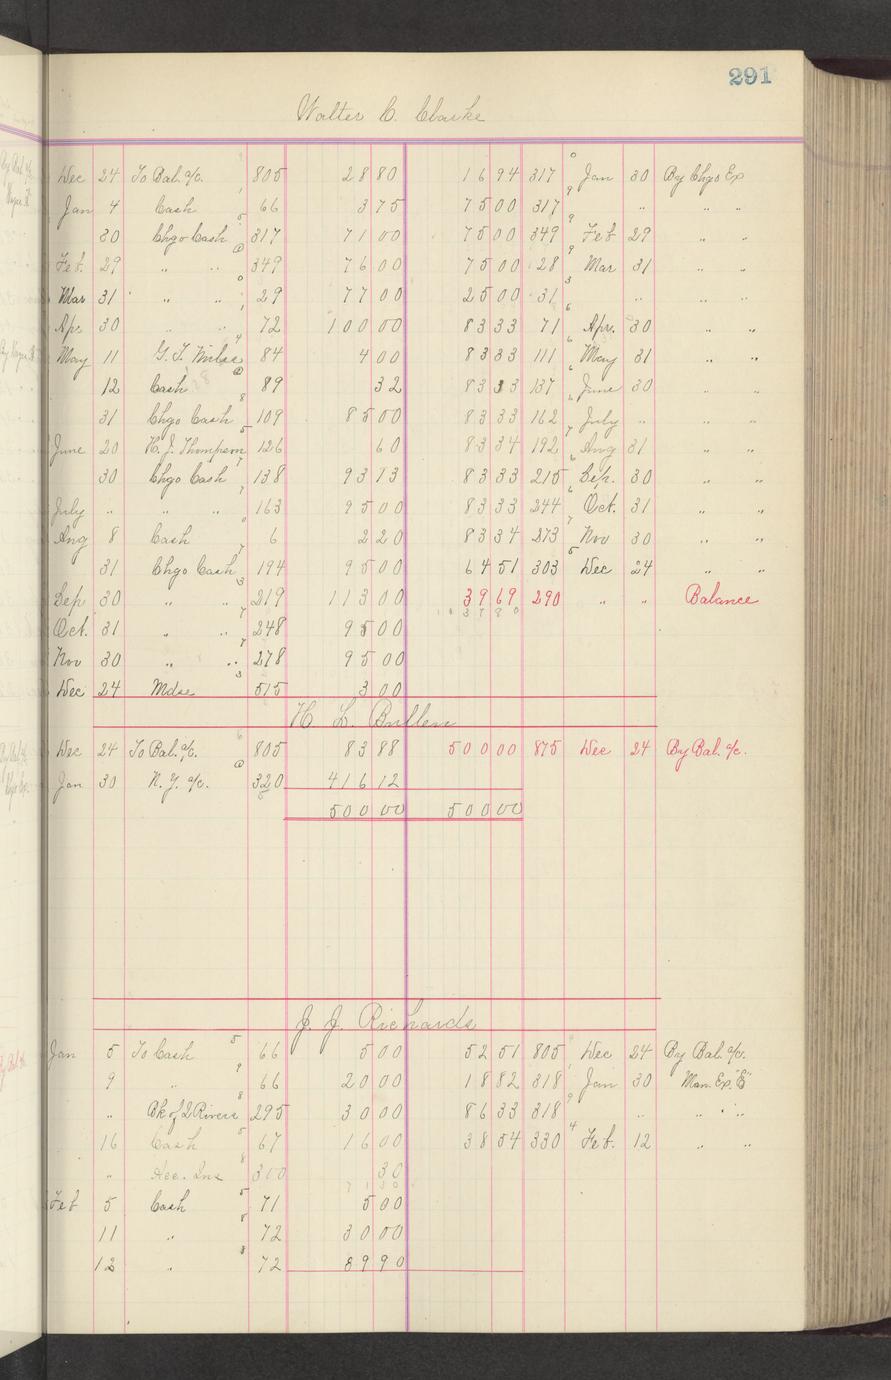 291
Walter C. Clarke
Dec 24 To Bal. a/c. 805 28 80 16 94 317 Jan 30 By Chgo Ex
Jan 4 Cash 66 3 75 75 00 317 " " "
30 Chgo Cash 317 71 00 75 00 349 Feb 29 " "
Feb. 29 " " 349 76 00 75 00 28 Mar 31 " "
Mar 31 " " 29 77 00 25 00 31 " " " "
Apr 30 " " 72 100 00 83 33 71 Apr. 30 " "
May 11 84 4 00 83 33 111 May 31 " "
12 Cash 89 32 83 33 137 June 30 " "
31 Chgo Cash 109 85 00 83 33 162 July " " "
June 20 H. J. Thompson 126 60 83 34 192 Aug 31 " "
30 Chgo Cash 138 93 73 83 33 215 Sep. 30 " "
July " " " 163 95 00 83 33 244 Oct. 31 " "
Aug 8 Cash 6 2 20 83 34 273 Nov 30 " "
31 Chgo Cash 194 95 00 64 51 303 Dec 24 " "
Sep 30 " " 219 113 00 39 69 290 " " Balance
Oct. 31 " " 248 95 00
Nov 30 " " 278 95 00
Dec 24 Mdse 515 3 00
H. L. Bullen
Dec 24 To Bal. a/c. 805 83 88 500 00 875 Dec 24 By Bal. a/c.
Jan 30 N. Y. a/c. 320 416 12
500 00 500 00
J. J. Richards
Jan 5 To Cash 66 5 00 52 51 805 Dec 24 By Bal. a/c.
9 " 66 20 00 18 82 318 Jan 30 Man. Ex. "E"
" Bk of 2 Rivers 295 30 00 86 33 318 " " " "
16 Cash 67 16 00 38 54 330 Feb. 12 " "
" Acc. Ins 300 30
Feb 5 Cash 71 5 00
11 " 72 30 00
12 " 72 89 90